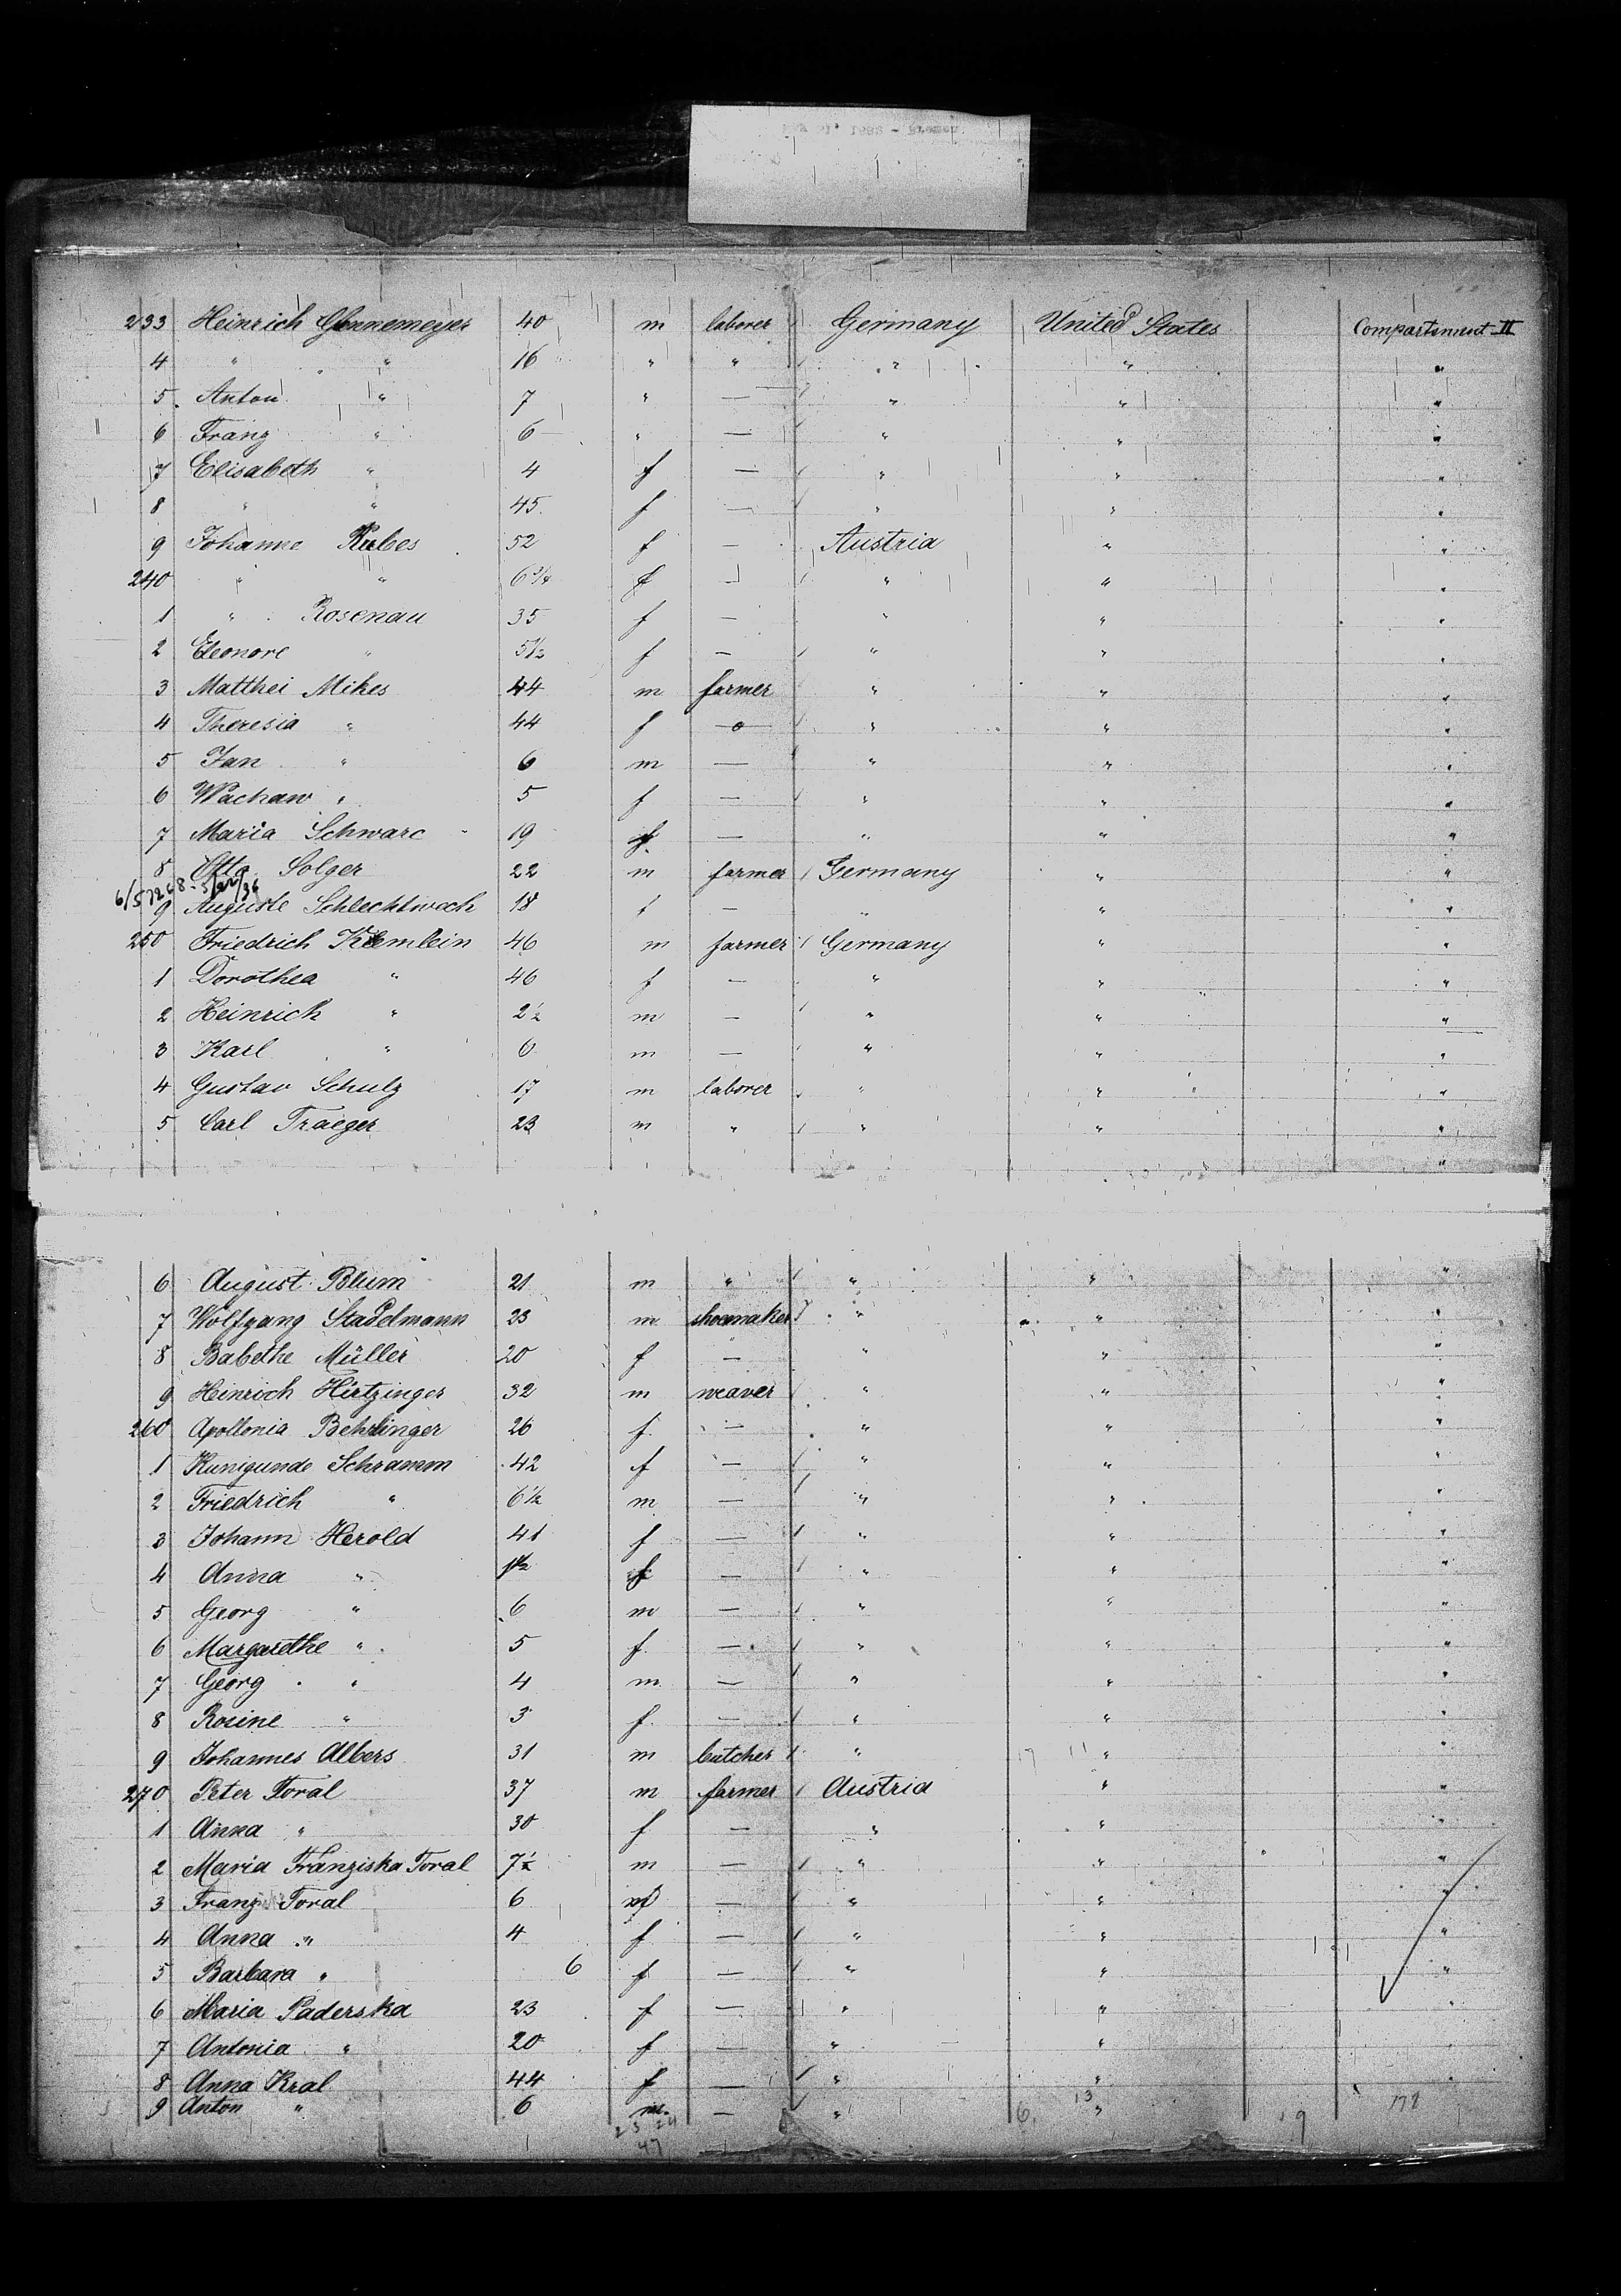 233 Heinrich Gennemeyer 40 m laborer Germany United States Compartement II
4 " " 16 " " " " "
5 Anton " 7 " — " " "
6 Franz " 6 " — " " "
7 Elisabeth " 4 f — " " "
8 " " 45 f — " " "
9 Johanne Kubes 52 f — Austria " "
240 " " 6 3/4 f — " " "
1 " Rosenau 35 f — " " "
2 Eleonore " 5 1/2 f — " " "
3 Matthei Mikes 44 m farmer " " "
4 Theresia " 44 f — " " "
5 Jan " 6 m — " " "
6 Wachaw " 5 f — " " "
7 Maria Schwarc 19 f — " " "
8 Otto Solger 22 m farmer Germany " "
9 Auguste Schlechtwech 18 f — " " "
250 Friedrich Kremlein 46 m farmer Germany " "
1 Dorothea " 46 f — " " "
2 Heinrich " 2 1/2 m — " " "
3 Karl " 6 m — " " "
4 Gustav Schulz 17 m laborer " " "
5 Carl Traeger 23 m " " " "
6 August Blum 21 m " " " "
7 Wolfgang Stadelmann 23 m shoemaker " " "
8 Babethe Müller 20 f — " " "
9 Heinrich Hirtzinger 32 m weaver " " "
260 Apollonia Behringer 26 f — " " "
1 Kunigunde Schramm 42 f — " " "
2 Friedrich " 6 1/2 m — " " "
3 Johann Herold 41 f — " " "
4 Anna " f — " " "
5 Georg " 6 m — " " "
6 Margarethe " 5 f — " " "
7 Georg " 4 m — " " "
8 Rosine " 3 f — " " "
9 Johannes Albers 31 m butcher " " "
270 Peter Toral 37 m farmer Austria " "
1 Anna " 30 f — " " "
2 Maria Franziska Toral 7 1/2 m — " " "
3 Franz Toral 6 — " " "
4 Anna " 4 f — " " "
5 Barbara " 6 f — " " "
6 Maria Paderska 23 f — " " "
7 Antonia " 20 f — " " "
8 Anna Kral 44 f — " " "
9 Anton " 6 m — " "
23 24
47